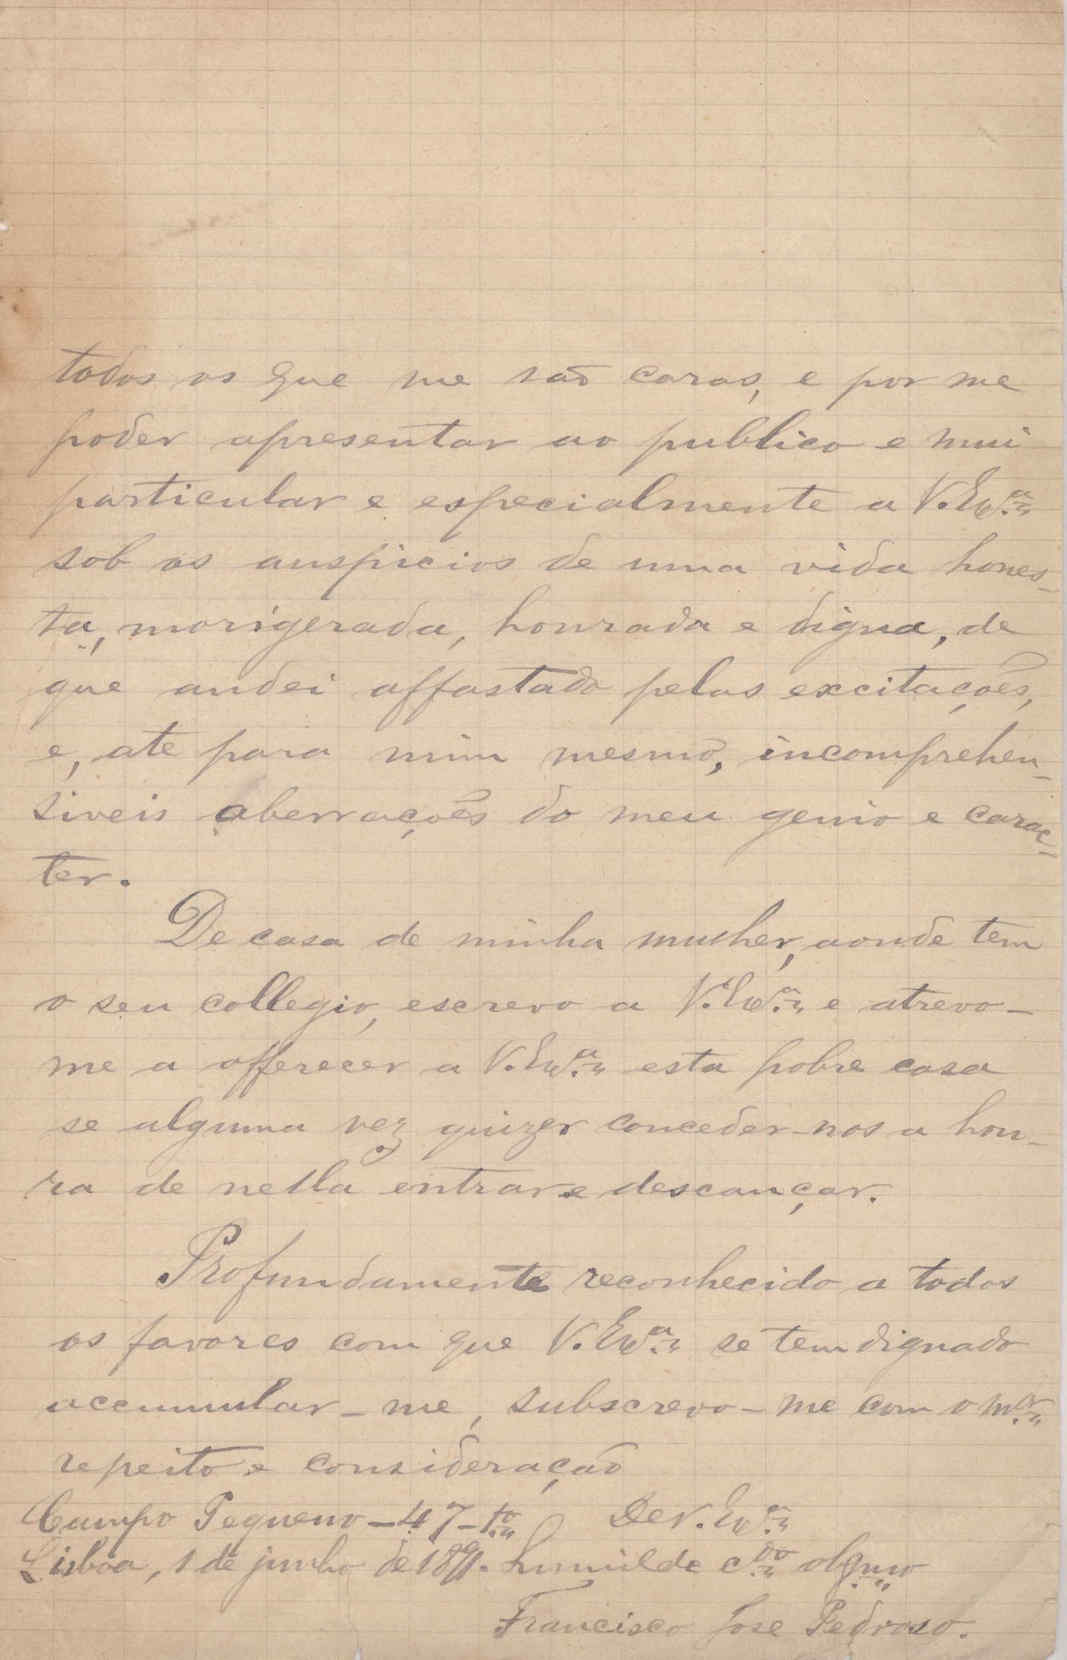 todos os que me são caros, e por me
poder apresentar ao publico e mui
particular e especialmente a V. Ex.ª
sob os auspicios de uma vida hones-
ta, morigerada, honrada e digna, de
que andei affastado pelas excitações,
e, ate para mim mesmo, incomprehen-
siveis aberrações do meu genio e carac-
ter.
De casa de minha mulher, aonde tem
o seu collegio, escrevo a V. Ex.ª e atrevo-
me a offerecer a V. Ex.ª esta pobre casa
se alguma vez quizer conceder-nos a hon-
ra de nella entrar e descançar.
Profundamente reconhecido a todos
os favores com que V. Ex.ª se tem dignado
accumular-me, subscrevo-me com o m.or
repeito e consideração
Campo Pequeno - 47 - De V. Ex.ª
Lisboa, 1 de junho de 1891. humilde c.do obgmo
Francisco Jose Pedroso.